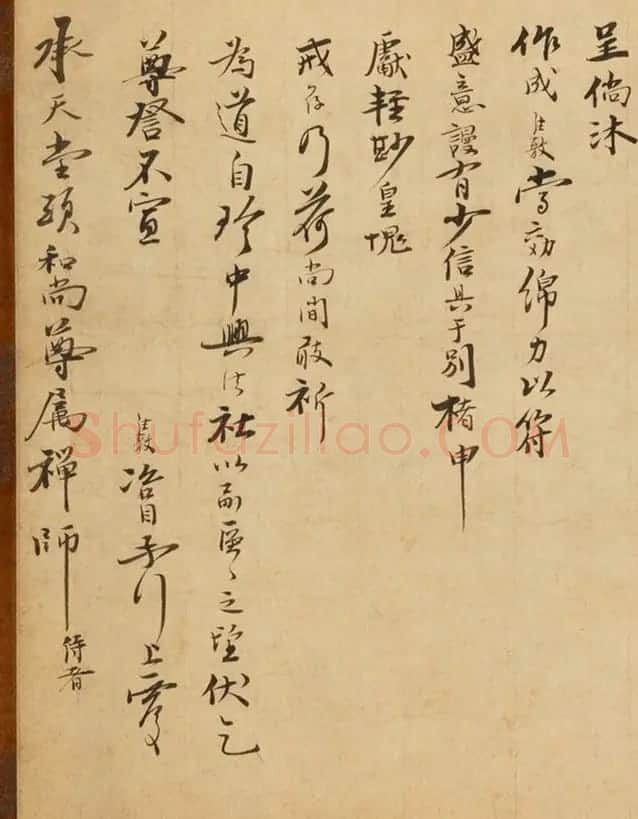 呈倘沐
作成當効綿力以符
盛意謾有少信具于別楮申
獻輕尠皇愧
乃荷尚間敢祈
為道自珍中興法社以副區々之望伏乞
尊詧不宣 上覆
承天堂頭和尚尊属禅師 侍者
Shufaziliao.COM